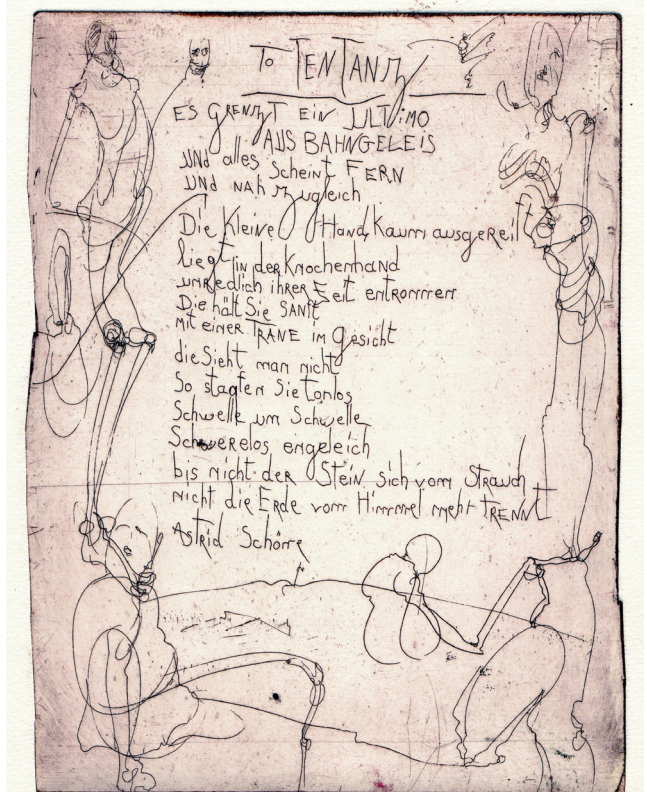 TOTENTANZ
ES GRENZT EIN ULTIMO
AUS BAHNGELEIS
UND alles Scheint FERN
UND NAH Zugleich
Die Kleine Hand, Kaum ausgereift
liegt in der Knochenhand
unredlich ihrer Zeit entronnen
Die hält Sie SANft
mit einer TRÄNE im Gesicht
die Sieht man nicht
So stapfen Sie tonlos
Schwelle um Schwelle
Schwerelos engeleich
bis nicht der Stein sich vom Strauch
nicht die Erde vom Himmel mehr TRENNT
Astrid Schöne